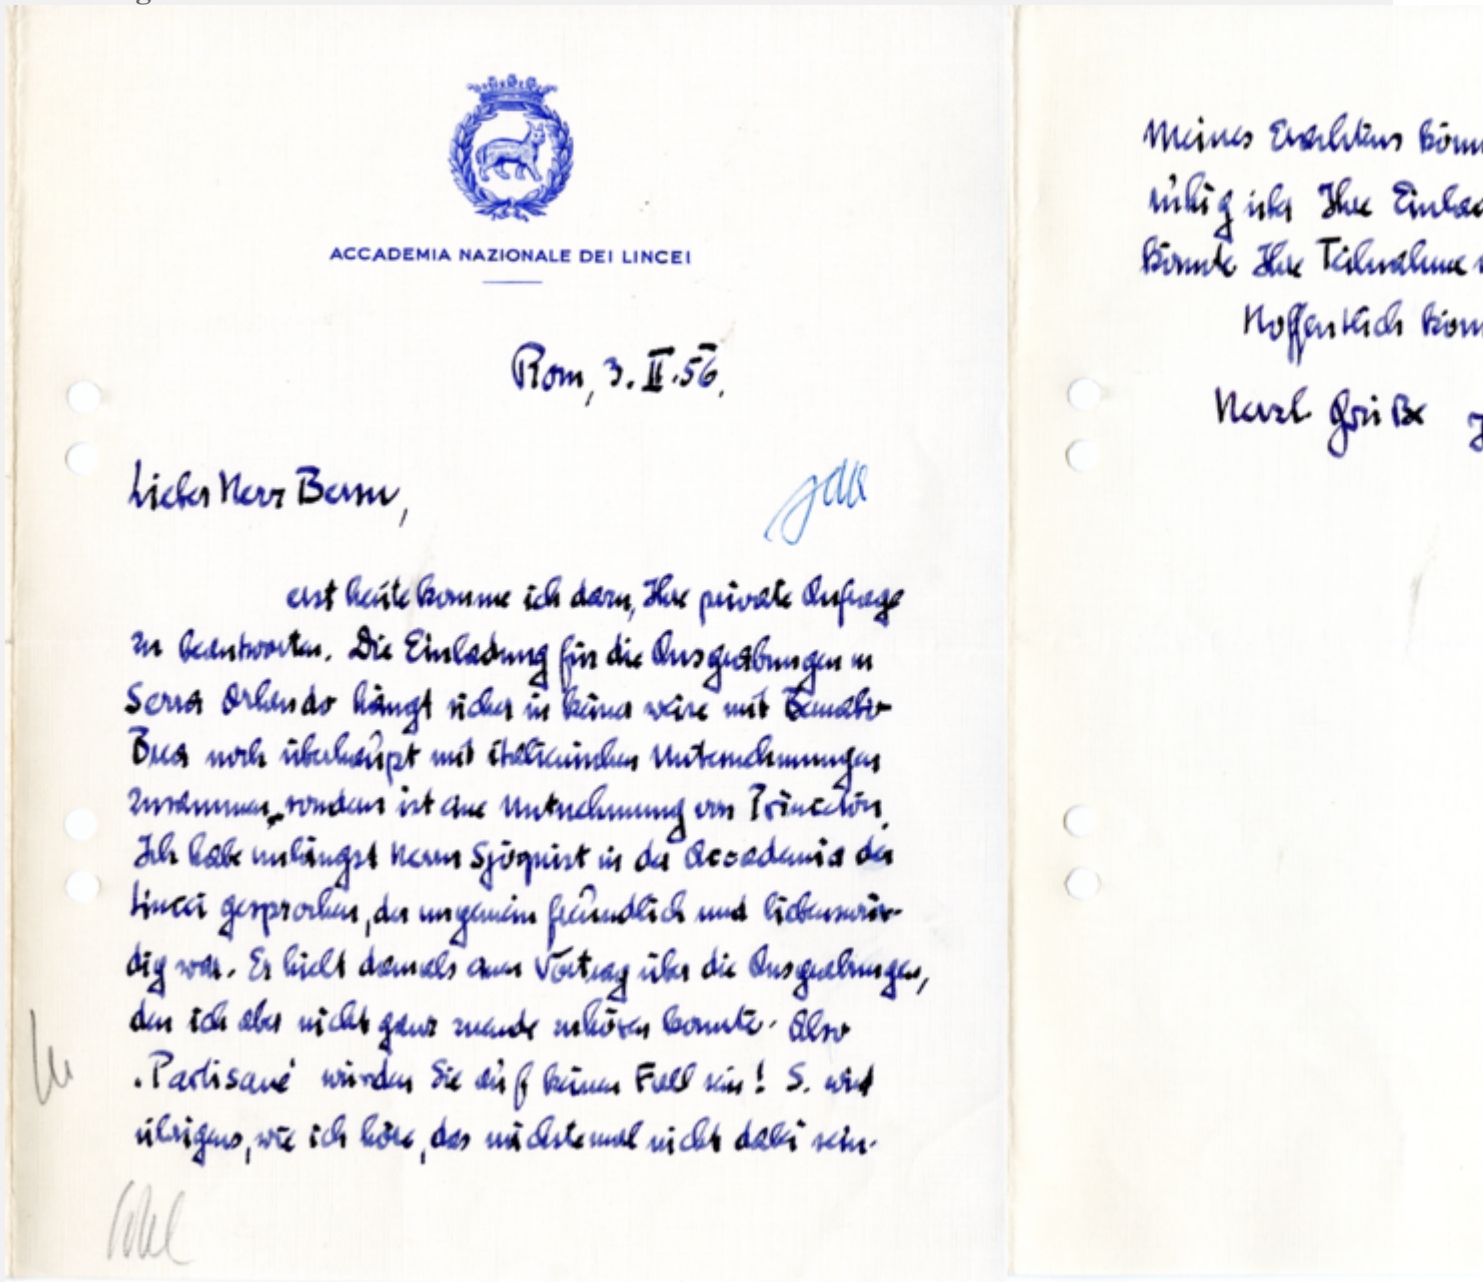 ACCADEMIA NAZIONALE DEI LINCEI
Rom, 3. II. 56.
Lieber Herr
erst heute komme ich dazu, Ihre private Anfrage
zu beantworten. Die Einladung für die Ausgrabungen in
Serra Orlando hängt sicher in keiner weise mit Bernabò-
Brea noch überhaupt mit italienischen Unternehmungen
zusammen, sondern ist eine Unternehmung von Princeton.
Ich habe unlängst Herrn Sjöquist in der Accademia dei
Lincei gesprochen, der ungemein freundlich und liebenswür-
dig war. Er hielt damals einen Vortrag über die Ausgrabungen,
den ich aber nicht ganz zuende zuhören konnte. Also
"Partisane" würden Sie auf keinen Fall sein! S. wird
übrigens, wie ich höre, das nächstemal nicht dabei sein.
Meines Erachtens
ruhig ihr Ihre
könnte Ihre Teilnahme
Hoffentlich
Herzl. Grüße